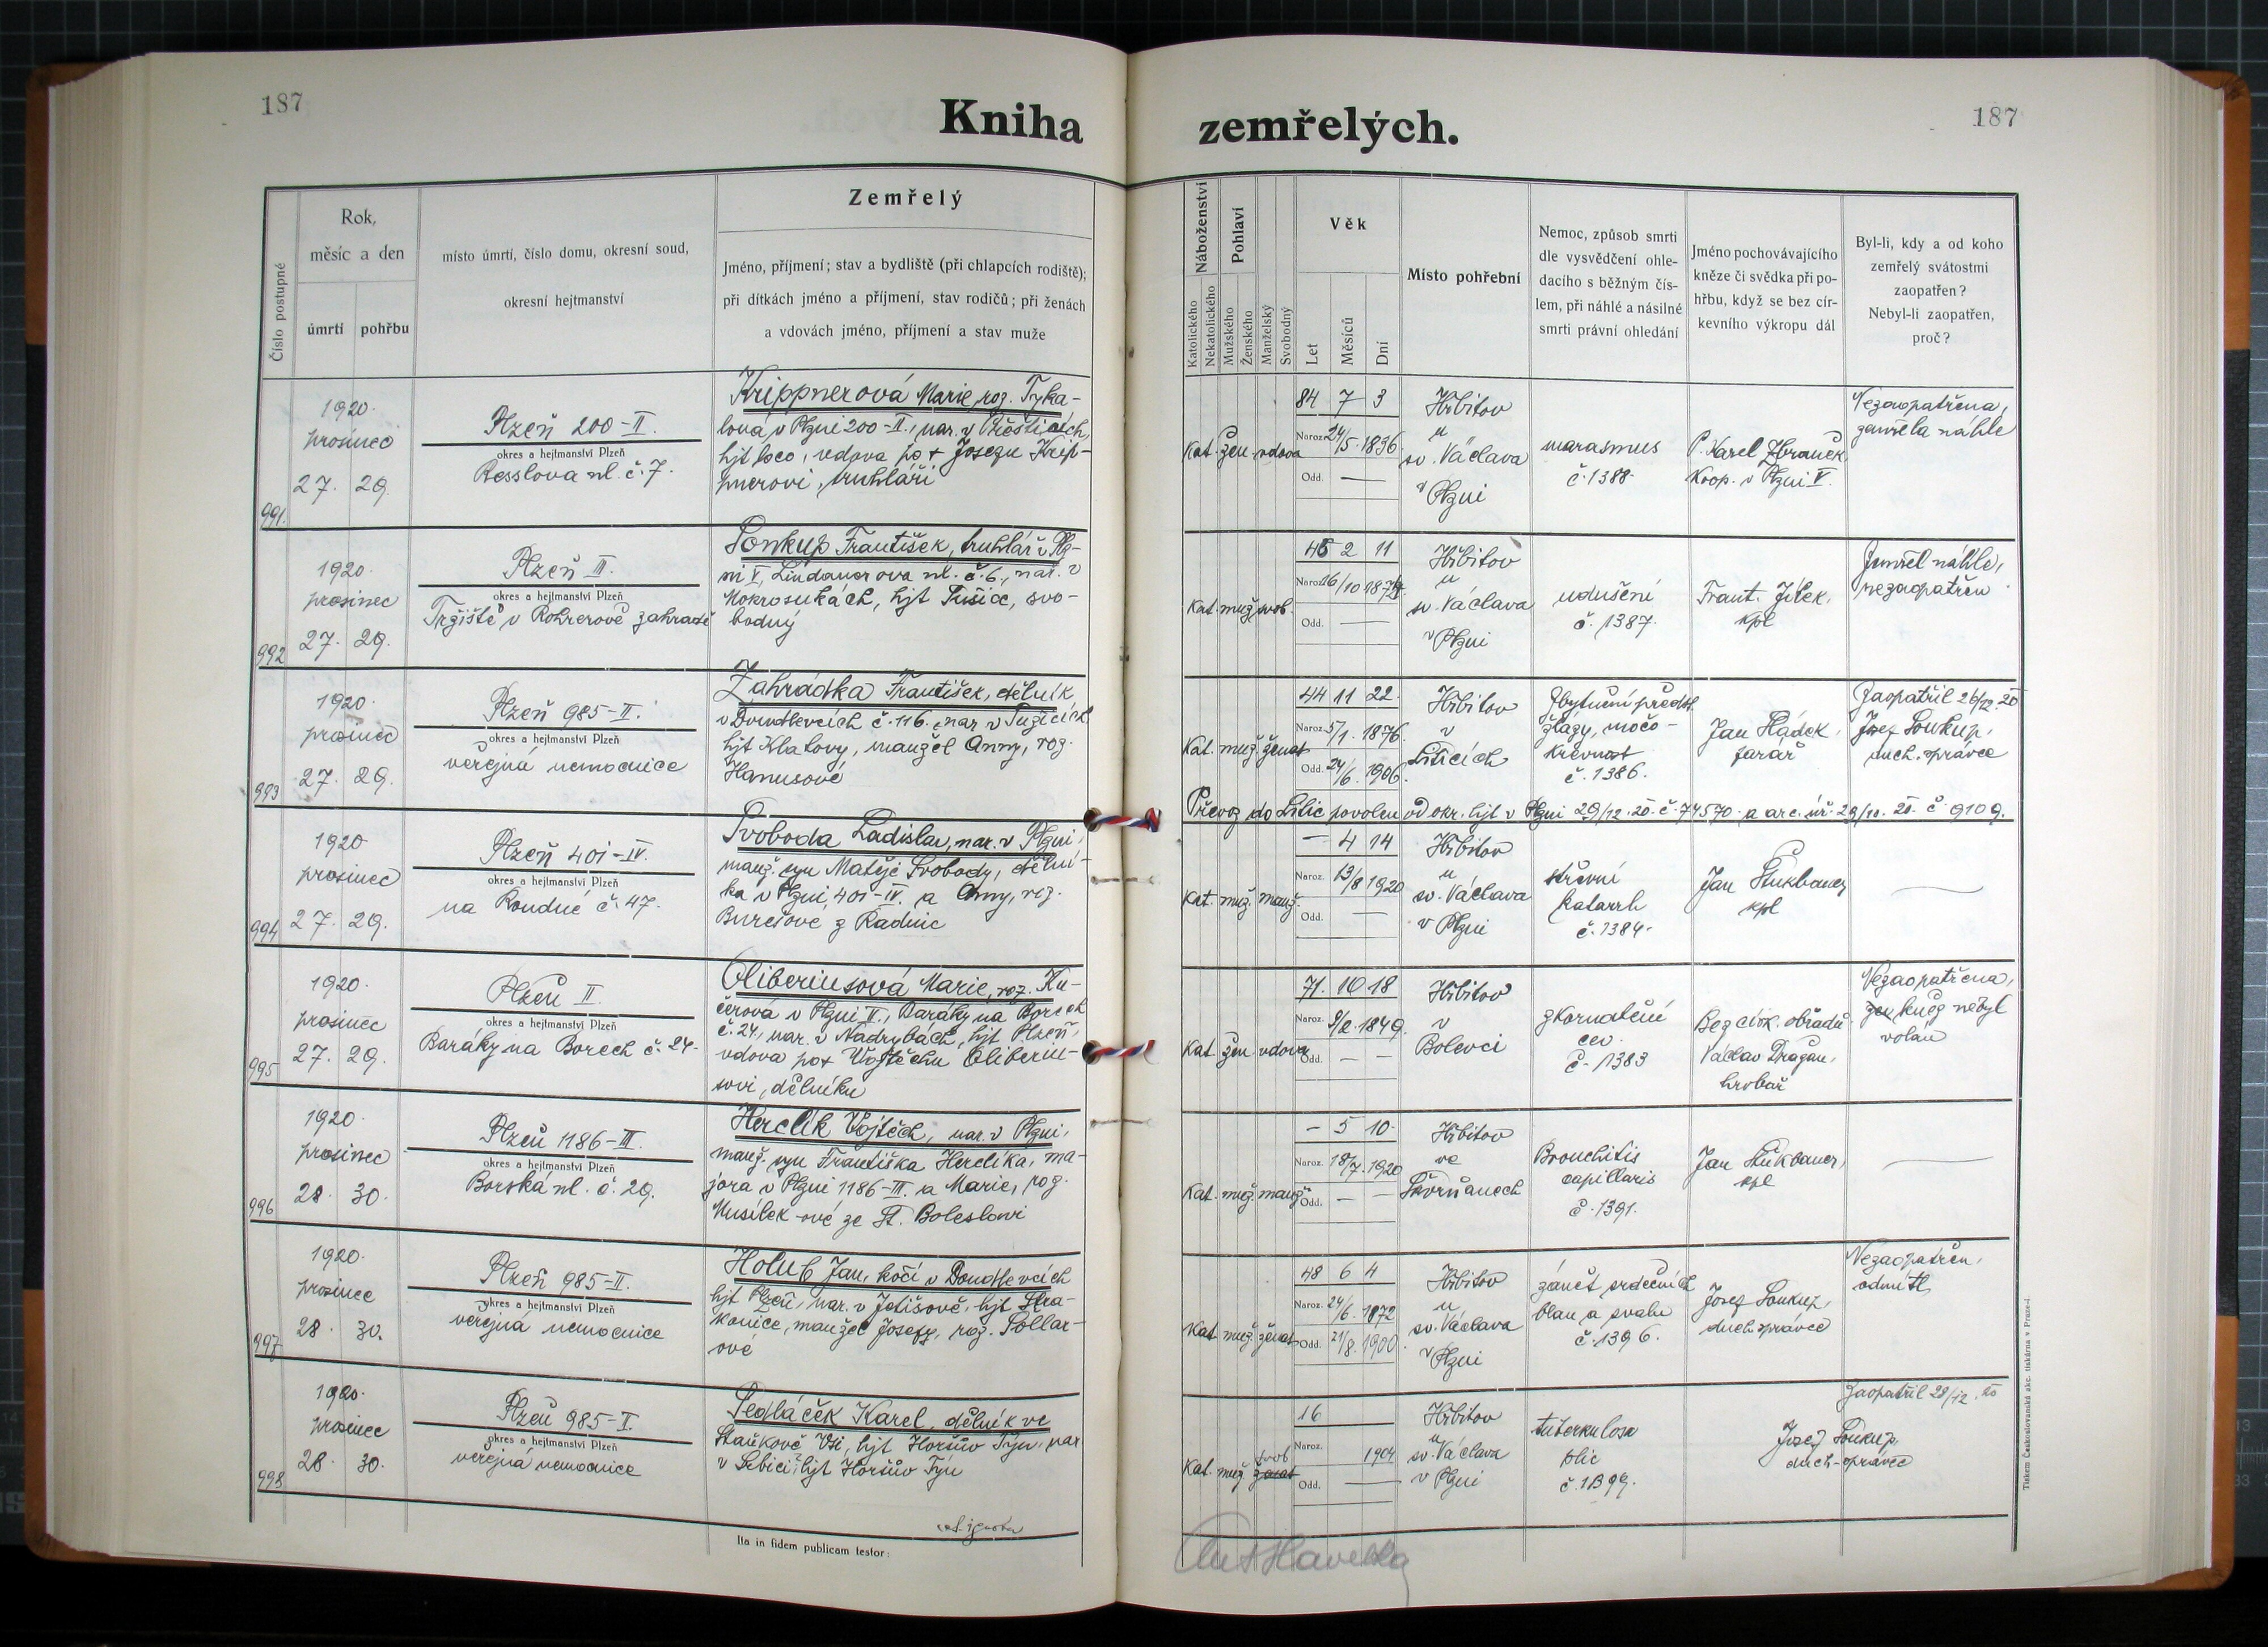 187
187
Kniha zemřelých.
Číslo postupné
Rok,
měsíc a den
úmrtí
pohřbu
místo úmrtí, číslo domu, okresní soud,
okresní hejtmanství
Zemřelý
Jméno, příjmení; stav a bydliště (při chlapcích rodiště);
při dítkách jméno a příjmení, stav rodičů; při ženách
a vdovách jméno, příjmení a stav muže
Náboženství
Katolického
Nekatolického
Pohlaví
Mužského
Ženského
Manželský
Svobodný
Věk
Let
Měsíců
Dní
Místo pohřební
Nemoc, způsob smrti
dle vysvědčení ohle-
dacího s běžným čís-
lem, při náhlé a násilné
smrti právní ohledání
Jméno pochovávajícího
kněze či svědka při po-
hřbu, když se bez cír-
kevního výkropu dál
Byl-li, kdy a od koho
zemřelý svátostmi
zaopatřen?
Nebyl-li zaopatřen,
proč?
991.
1920.
prosinec
27. 29.
Plzeň 200-II.
okres a hejtmanství Plzeň
Resslova ul. č. 7.
Krippnerová Marie, roz. Tyka-
lova, v Plzni 200-II., nar. v Přešticích,
hjt loco, vdova po + Josefu Krip-
pnerovi, truhláři
Kat. žen. vdova
84 7 3
Naroz. 24/5. 1836
Odd. —
Hřbitov
u
sv. Václava
v Plzni
marasmus
č. 1388.
P. Karel Zbraněk
koop. v Plzni V.
Nezaopatřena,
zemřela náhle
992
1920.
prosinec
27. 29.
Plzeň II.
okres a hejtmanství Plzeň
Tržiště v Rohrerově zahradě
Soukup František, truhlář v Plz-
ni V, Lindauerova ul. č. 6., nar. v
Mokrosukách, hjt Sušice, svo-
bodný
Kat. muž. svob.
46 2 11
Naroz. 16/10 1874
Odd. —
Hřbitov
u
sv. Václava
v Plzni
udušení
č. 1387.
Frant. Jílek,
kpl
Zemřel náhle,
nezaopatřen
993
1920.
prosinec
27. 29.
Plzeň 985-II.
okres a hejtmanství Plzeň
veřejná nemocnice
Zahrádka František, dělník
v Doudlevcích č. 116. nar v
hjt Klatovy, manžel Anny, roz.
Hanusové
Kat. muž. ženat
44 11 22.
Naroz. 5/1. 1876.
Odd. 24/6. 1906.
Hřbitov
v
Liticích
Zbytnění předst.
žlázy, močo-
krevnost
č. 1386.
Jan Hádek,
farář
Zaopatřil 26/12. 20
Josef Soukup,
duch. správce
Převoz do Litic povolen od okr. hjt v Plzni 29/12. 20. č. 74570. a arc. úř. 29/12. 20. č. 9109.
994
1920
prosinec
27. 29.
Plzeň 401-IV.
okres a hejtmanství Plzeň
na Roudné č. 47.
Svoboda Ladislav, nar. v Plzni,
manž. syn Matěje Svobody, dělní-
ka v Plzni, 401-IV. a Anny, roz.
Burešové z Radnic
Kat. muž. manž.
— 4 14
Naroz. 13/8 1920
Odd. —
Hřbitov
u
sv. Václava
v Plzni
střevní
katarrh
č. 1384.
Jan Štukbauer,
kpl
995
1920.
prosinec
27. 29.
Plzeň II.
okres a hejtmanství Plzeň
Baráky na Borech č. 24.
Oliberiusová Marie, roz. Ku-
čerová v Plzni II., Baráky na Borech
č. 24, nar. v Nadrybách, hjt Plzeň,
vdova po + Vojtěchu Oliberiu-
sovi, dělníku
Kat. žen. vdova
71. 10 18
Naroz. 9/2. 1849.
Odd. — —
Hřbitov
v
Bolevci
zkornatění
cev.
č. 1383
Bez círk. obřadů
Václav Dragan,
hrobař
Nezaopatřena,
kněz nebyl
volán
996
1920.
prosinec
28. 30.
Plzeň 1186-III.
okres a hejtmanství Plzeň
Borská ul. č. 29.
Herclík Vojtěch, nar. v Plzni,
manž. syn Františka Herclíka, ma-
jora v Plzni 1186-III. a Marie, roz.
Musílek-ové ze St. Boleslavi
Kat. muž. manž.
— 5 10.
Naroz. 18/7. 1920
Odd. — —
Hřbitov
ve
Skvrňanech
Bronchitis
capillaris
č. 1391.
Jan Štukbauer,
kpl
997
1920.
prosinec
28. 30.
Plzeň 985-II.
okres a hejtmanství Plzeň
veřejná nemocnice
Holub Jan, kočí v Doudlevcích
hjt Plzeň, nar. v Jetišově, hjt Stra-
konice, manžel Josefy, roz. Pollar-
ové
Kat. muž. ženat
48 6 4
Naroz. 24/6. 1872
Odd. 21/8. 1900
Hřbitov
u
sv. Václava
v Plzni
zánět srdečních
blan a svalu
č. 1396.
Josef Soukup,
duch správce
Nezaopatřen,
odmítl
998
1920.
prosinec
28. 30.
Plzeň 985-II.
okres a hejtmanství Plzeň
veřejná nemocnice
Sedláček Karel, dělník ve
Staňkově Vsi, hjt Horšův Týn, nar
v Srbici, hjt Horšův Týn
svob
Kat. muž. ženat
16
Naroz. 1904
Odd. —
Hřbitov
u
sv. Václava
v Plzni
tuberkulosa
plic
č. 1399.
Josef Soukup,
duch-správce
Zaopatřil 28/12. 20
Ita in fidem publicam testor:
Ant Havelka
Tiskem Českoslovanská akc. tiskárna v Praze-I.